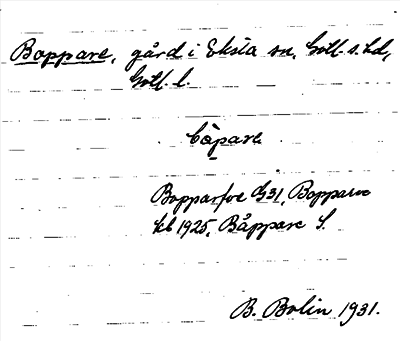 Boppare, gård i Eksta sn, Gotl. s. hd,
Gotl. l.
båpare
Bopparfve G31, Bopparve
kb 1925, Båppare S.
B. Bolin 1931.